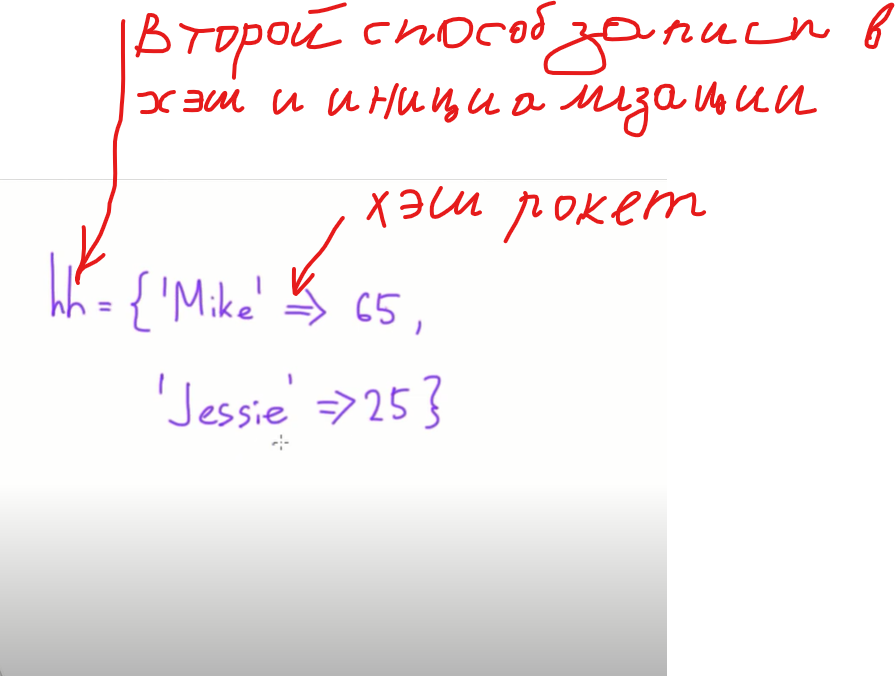 Второй способ записи в
хэш и инициализации
хэш рокет
hh = {'Mike' => 65,
'Jessie' => 25}